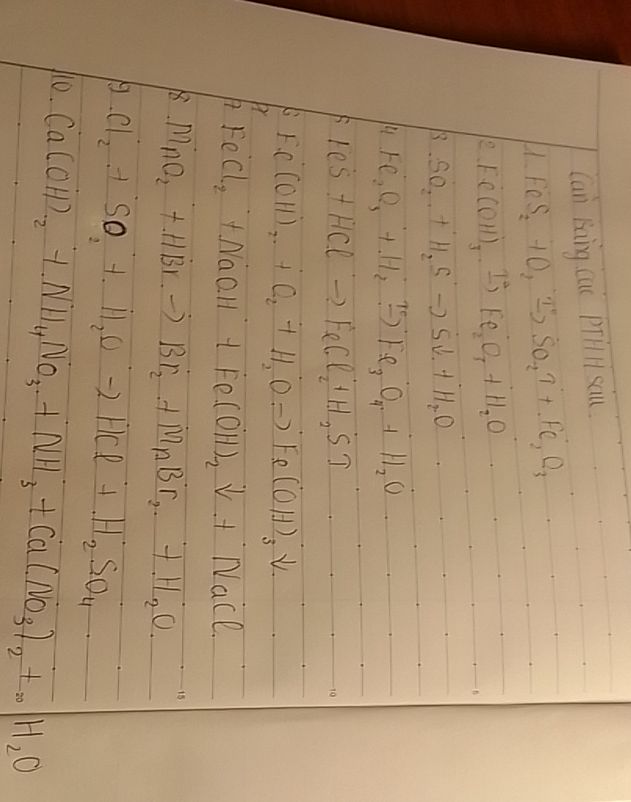 Cân bằng các PTHH sau
1. FeS₂ + O₂ T°→ SO₂↑ + Fe₂O₃
2. Fe(OH)₃ T°→ Fe₂O₃ + H₂O
3. SO₂ + H₂S → S↓ + H₂O
4. Fe₂O₃ + H₂ T°→ Fe₃O₄ + H₂O
5 FeS + HCl → FeCl₂ + H₂S↑
6 Fe(OH)₂ + O₂ + H₂O → Fe(OH)₃↓
7 FeCl₂ + NaOH + Fe(OH)₂↓ + NaCl
8. MnO₂ + HBr → Br₂ + MnBr₂ + H₂O
9. Cl₂ + SO₂ + H₂O → HCl + H₂SO₄
10. Ca(OH)₂ + NH₄NO₃ + NH₃ + Ca(NO₃)₂ + H₂O
5
10
15
20